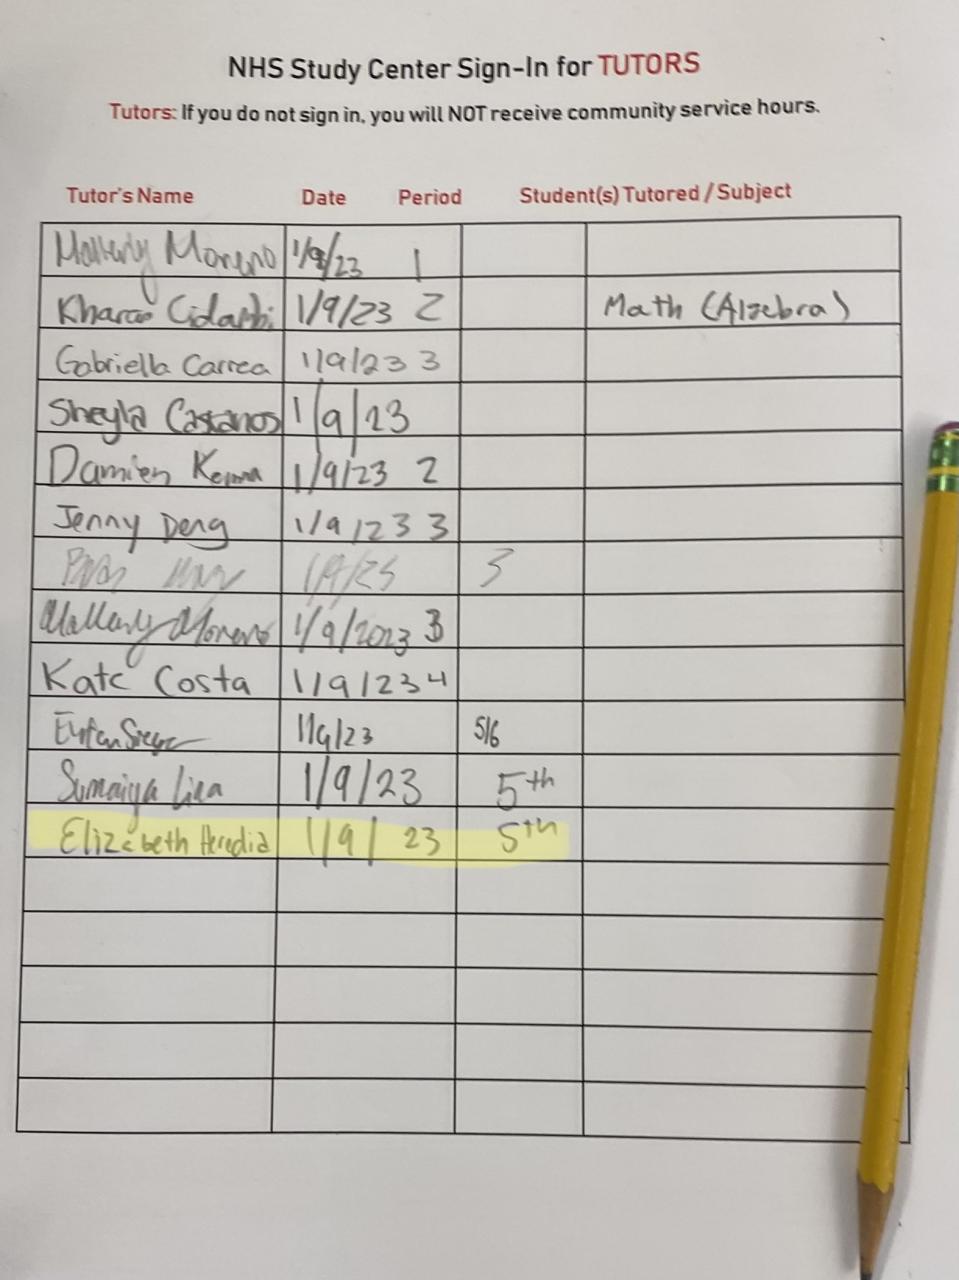 NHS Study Center Sign-In for TUTORS
Tutors: If you do not sign in, you will NOT receive community service hours.
Tutor's Name Date Period Student(s) Tutored / Subject
Moreno 1/9/23 1
1/9/23 2 Math (Algebra)
Gabriella Correa 1/9/23 3
Sheyla Castanos 1/9/23
Damien 1/9/23 2
Jenny Deng 1/9/23 3
1/9/23 3
Moreno 1/9/2023 3
Kate Costa 1/9/23 4
1/9/23 5/6
Sumaiya 1/9/23 5th
Elizabeth Heredia 1/9/23 5th